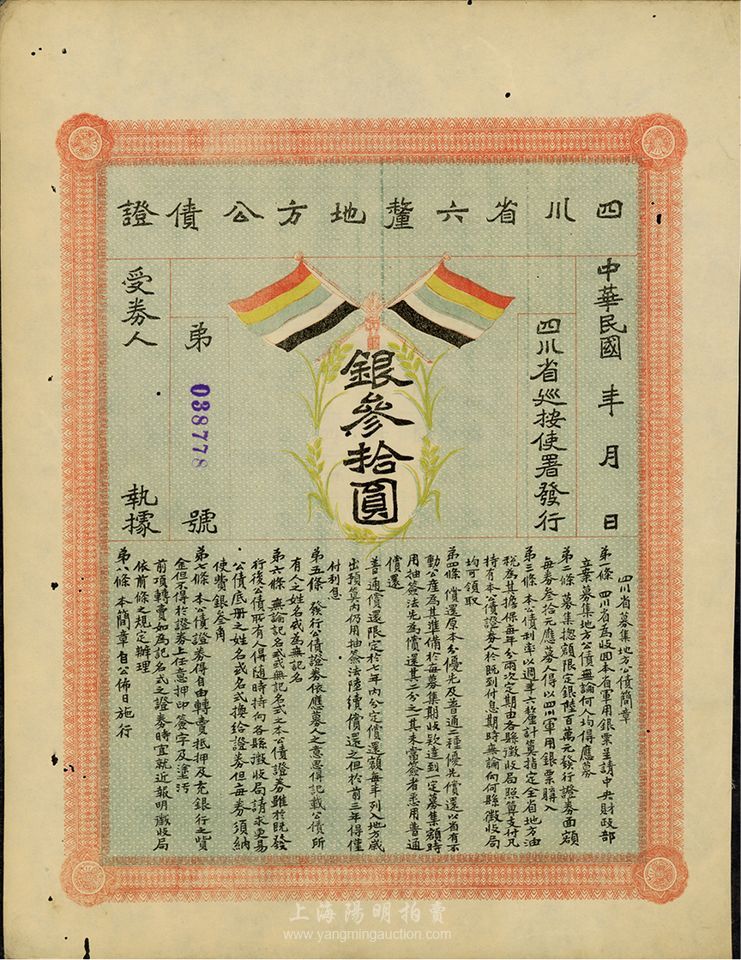 四川省六釐地方公債證
中華民國　年　月　日
四川省巡按使署發行
銀參拾圓
弟 038778 號
受券人　執據
四川省募集地方公債簡章
第一條　四川省為收回本省軍用銀票呈請中央財政部
立案募集地方公債無論何人均得應募
第二條　募集總額限定銀陸百萬元發行證券面額
每券叁拾元應募人得以四川軍用銀票購入
第三條　本公債利率以週年六釐計算指定全省地方油
稅為其擔保每年分兩次定期由各縣徵收局照算支付凡
持有本公債證券人於既到付息期時無論向何縣徵收局
均可領取
第四條　償還原本分優先及普通二種優先償還以省有不
動公產為其準備於每募集期收欵達到一定募集額時
用抽簽法先為償還其二分之一其未當簽者悉用普通
償還
普通償還限定於七年內分定償還額每年列入地方歲
出預算內仍用抽簽法陸續償還之但於前三年得僅
付利息
第五條　發行公債證券依應募人之意思得記載公債所
有人之姓名或為無記名
第六條　無論記名式或無記名式之本公債證券雖於既發
行後公債所有人得隨時持向各縣徵收局請求更易
公債底冊之姓名或名式換給證券但每券須納
使費銀叁角
第七條　本公債證券得自由轉賣抵押及充銀行之貲
金但不得於證券上任意押印簽字及塗污
前項轉賣如為記名式之證券時宜就近報明徵收局
依前條之規定辦理
第八條　本簡章自公佈日施行
上海陽明拍賣
www.yangmingauction.com